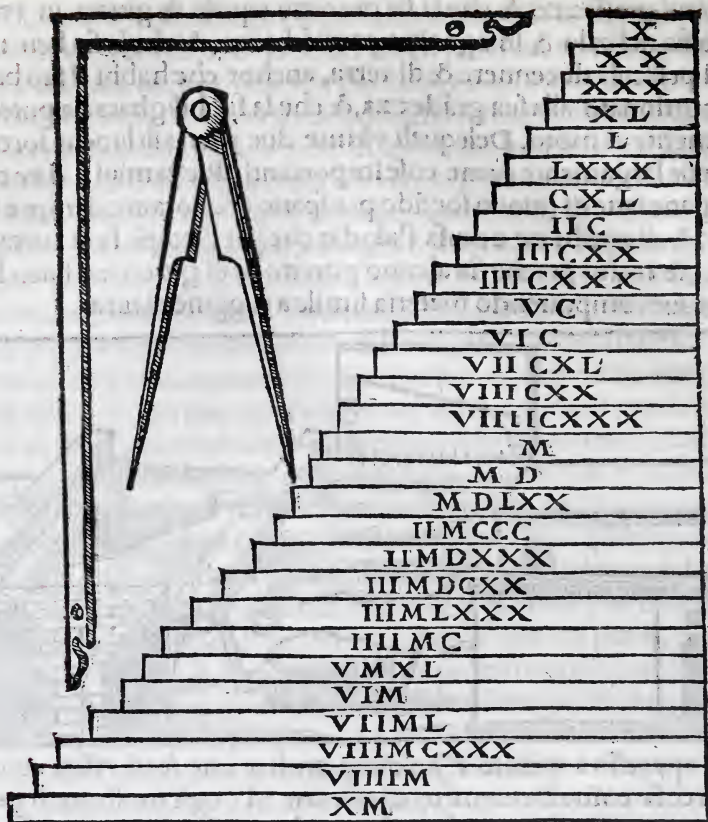 X
X X
XXX
XL
L
LXXX
CXL
IIC
IIICXX
IIIICXXX
VC
VIC
VIICXL
VIIICXX
VIIIICXXX
M
MD
MDLXX
IIMCCC
IIMDXXX
IIIMDCXX
IIIMLXXX
IIIIMC
VMXL
VIM
VIIML
VIIIMCXXX
VIIIIM
XM